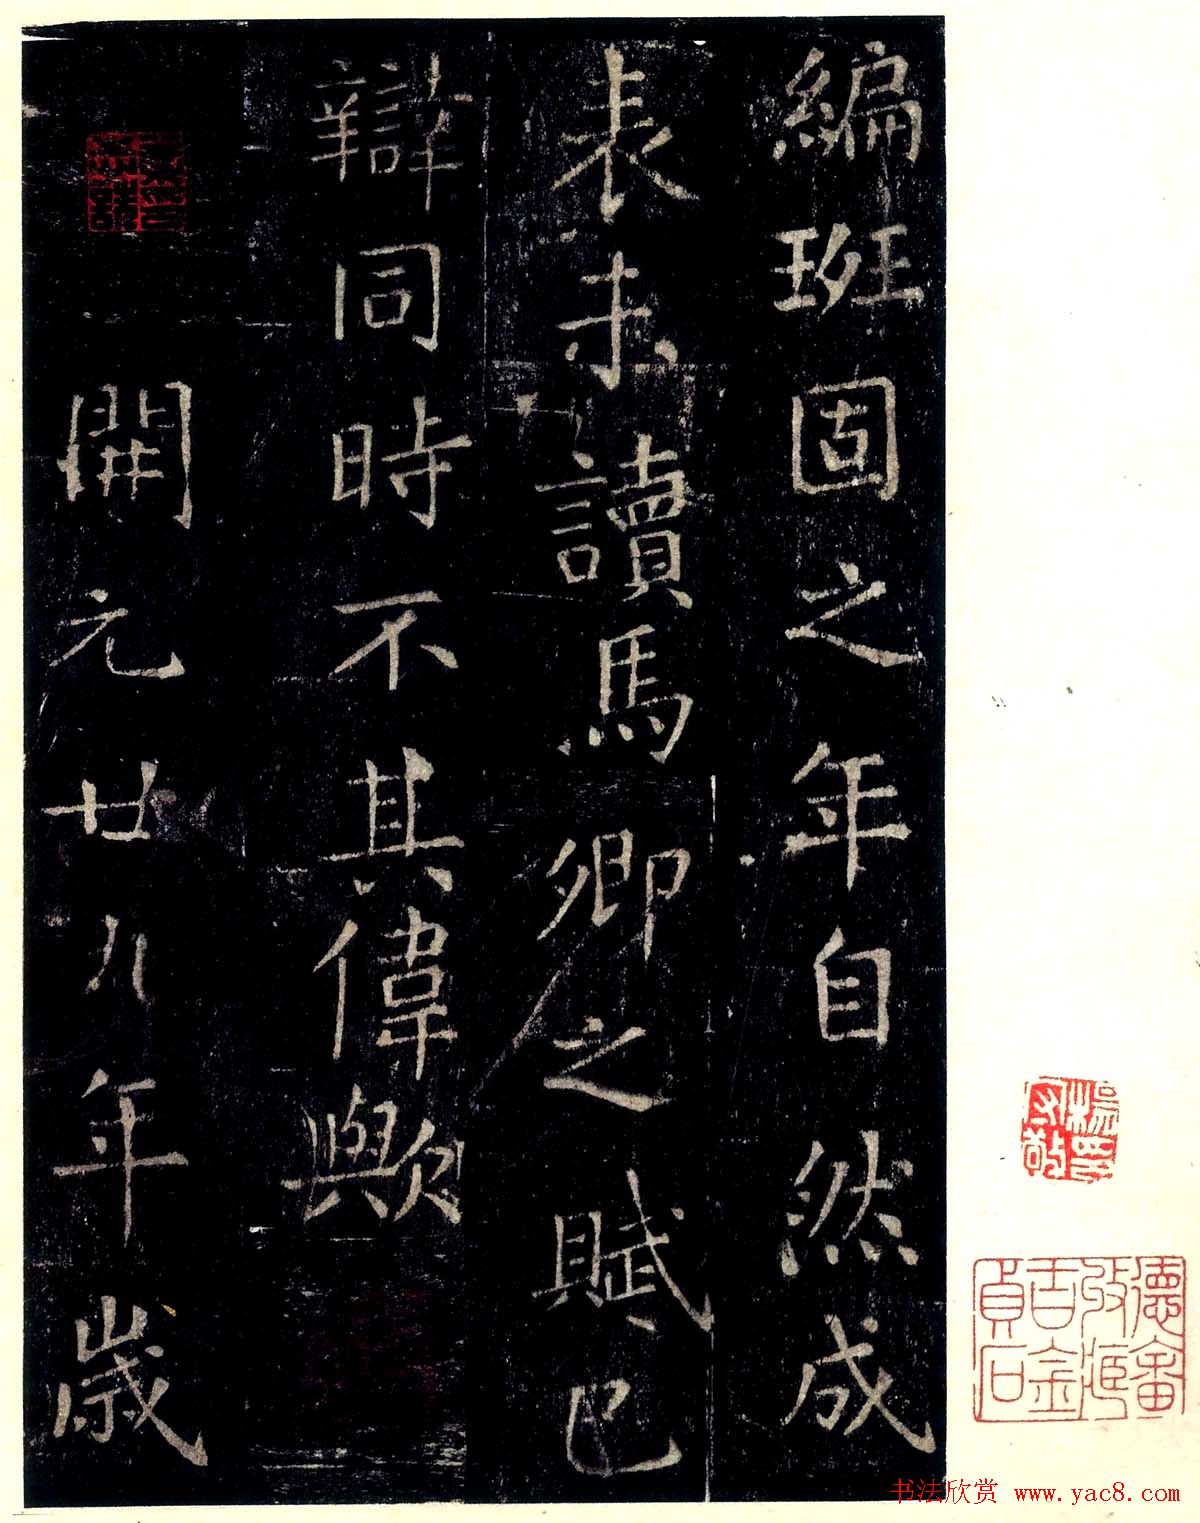 編班固之年自然成
表未讀馬卿之賦已
辯同時不其偉歟
開元廿九年歲
书法欣赏 www.yac8.com